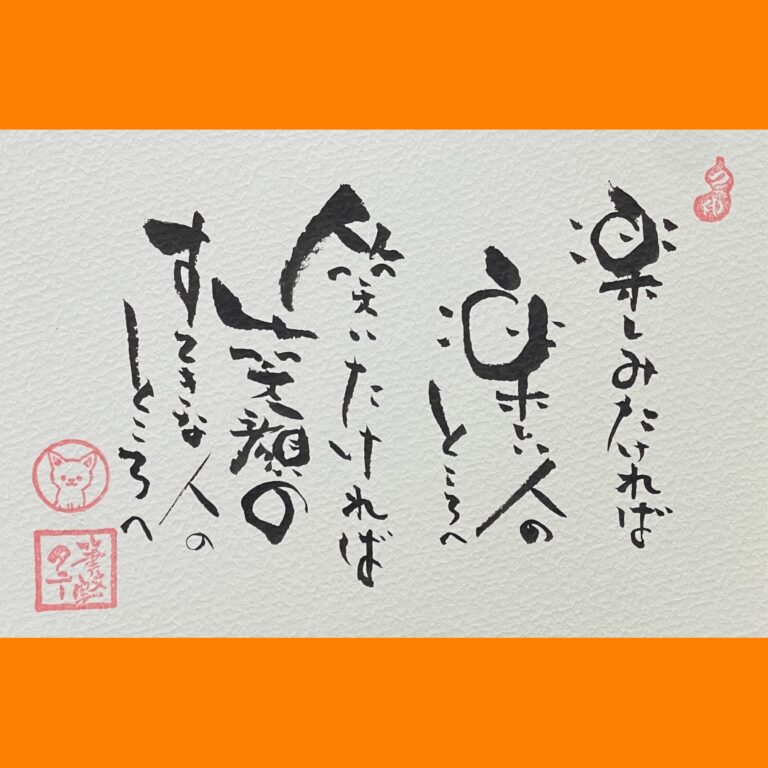 楽しみたければ
楽しい人の
ところへ
笑いたければ
笑顔の
すてきな人の
ところへ